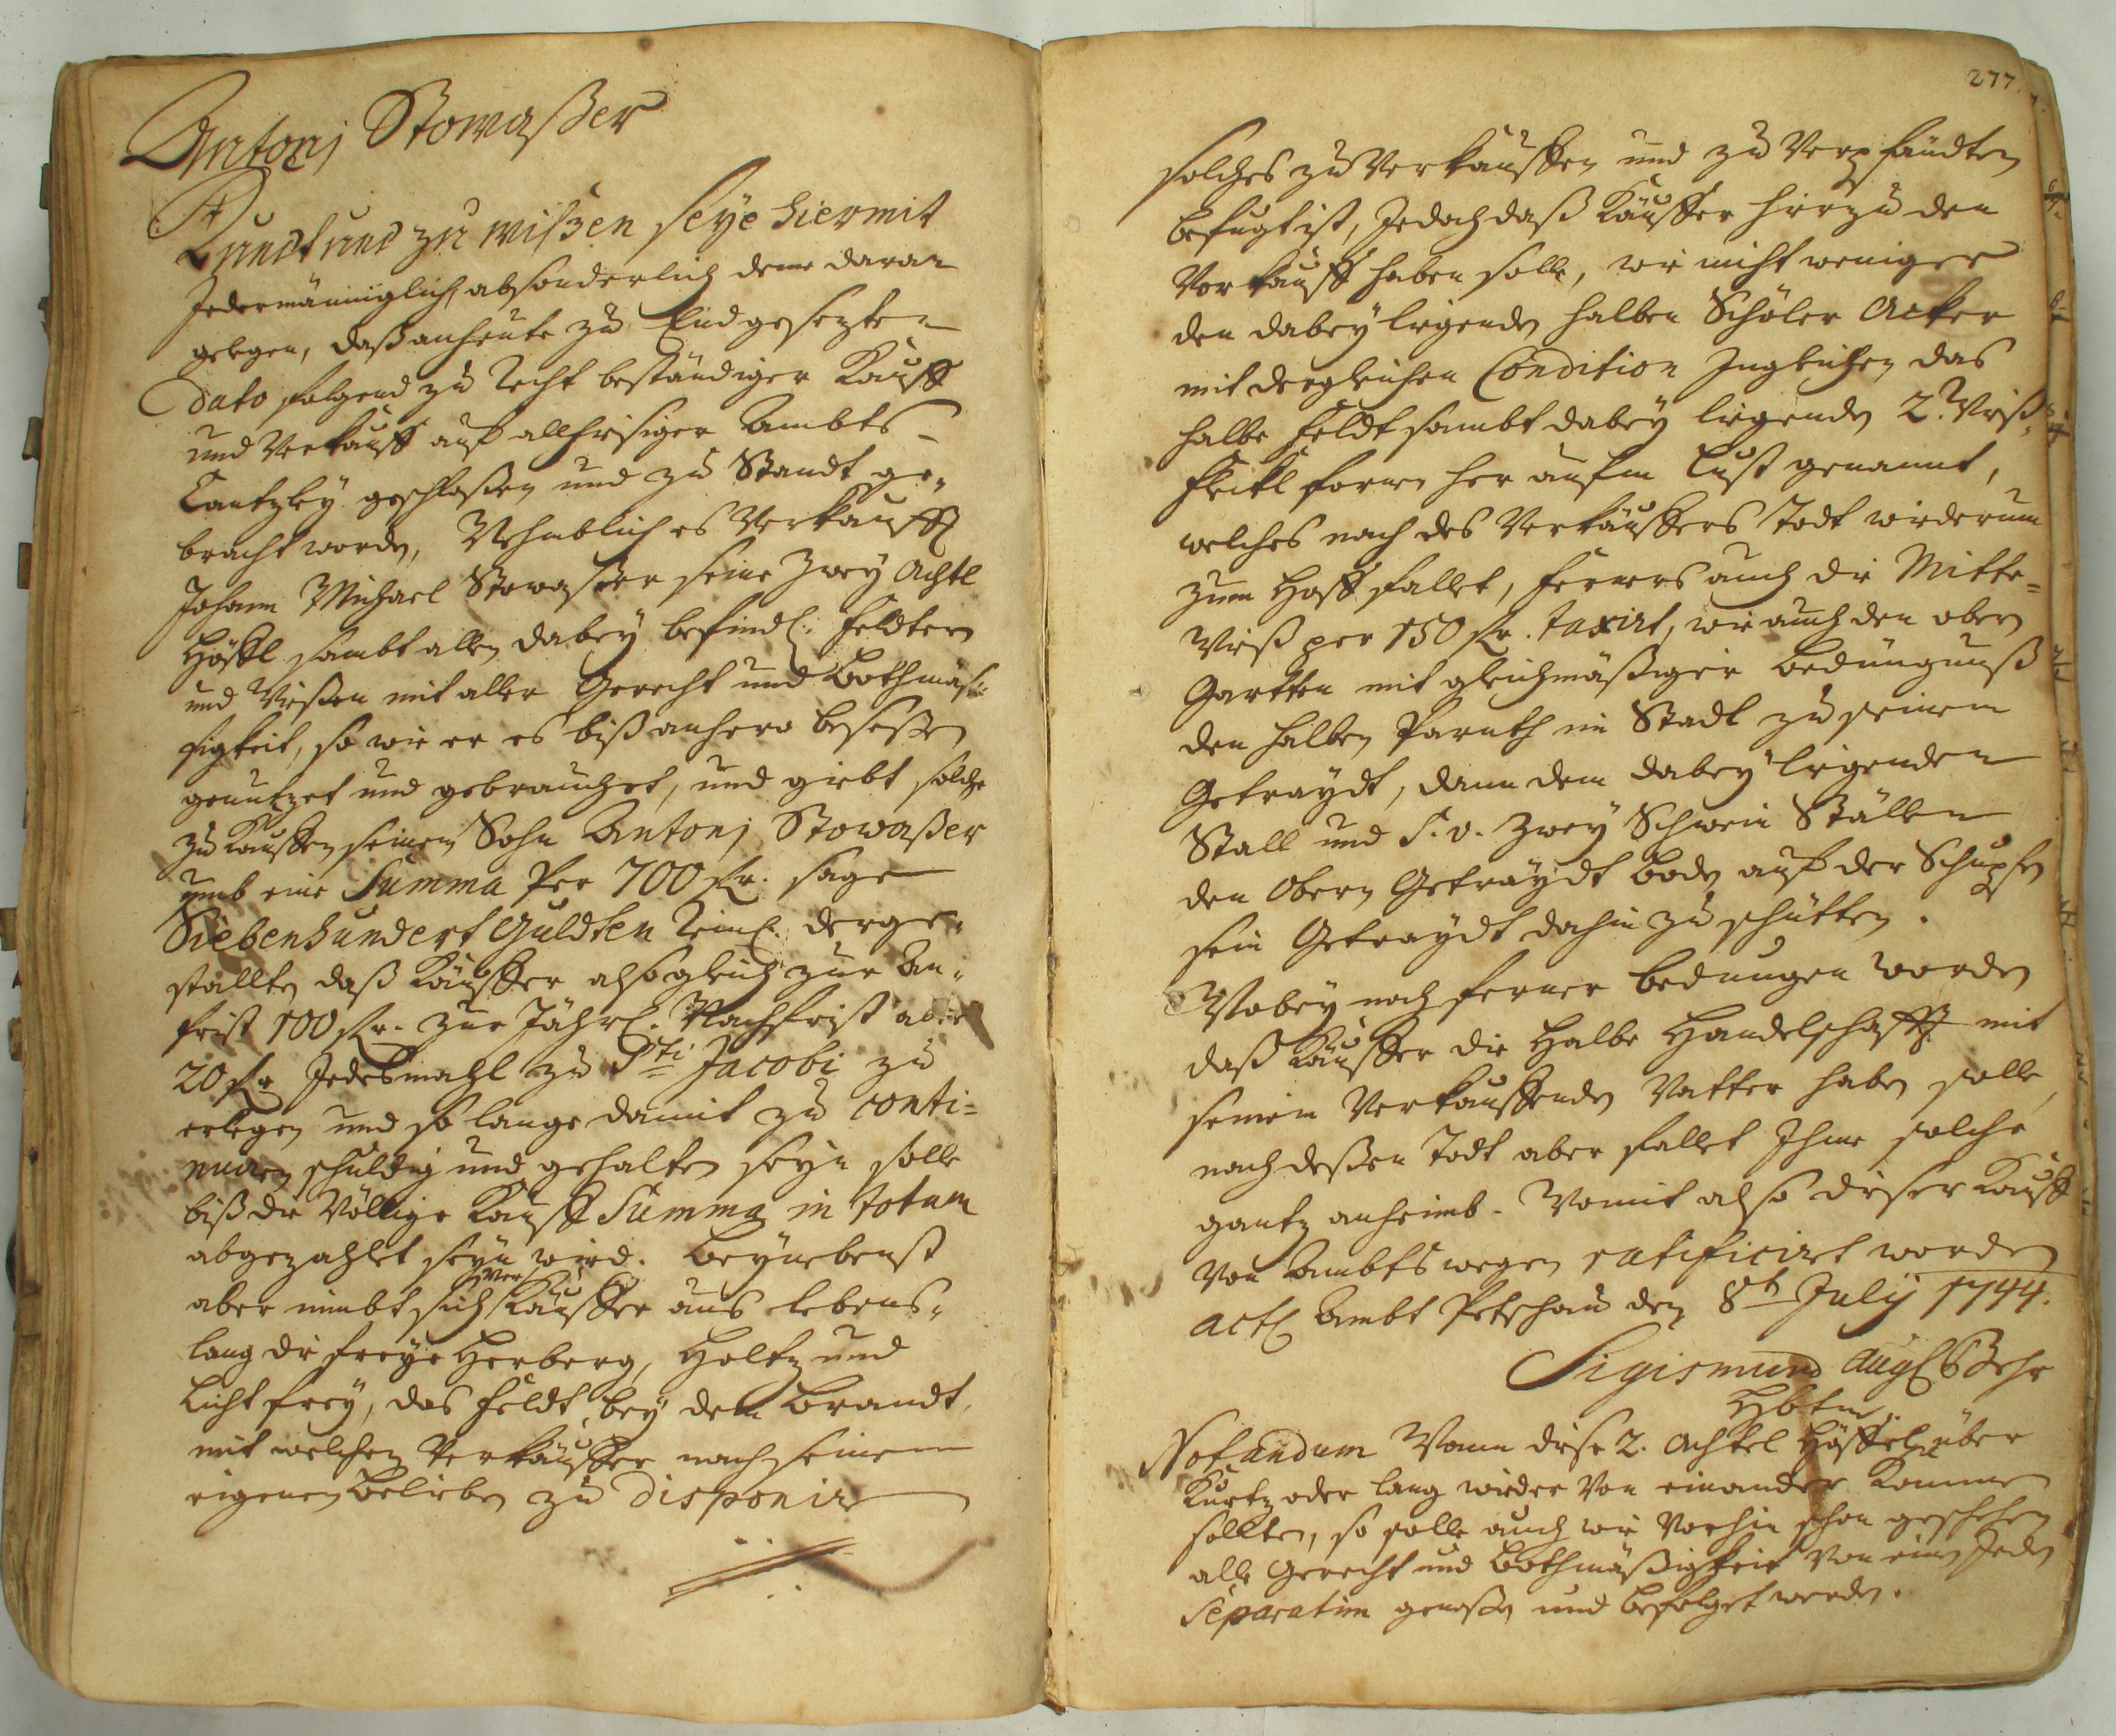 Antonj Stowaßer
Kundt und zu wißen seye hiermit
Jedermänniglich, absonderlich deme daran
gelegen, daß anheute zu Endgesezten
dato folgend zu Recht beständiger Kauff
und Verkauff auf allhisiger Ambts-
Cantzley geschloßen und zu Standt ge„
bracht worden, Nehmblich es Verkaufft
Johann Michael Stowaßer seine Zwey Achtl
Höffl sambt allen dabey befindl: Feldtern
und Wießen mit aller Gerecht und Bothmäs„
sigkeit, so wie er es biß anhero beseßen
genutzet und gebrauchet, und giebt solche
zu Kauffen seinen Sohn Antonj Stowaßer
umb eine Summa Per 700 fl. sage
Siebenhundert Guldten Reinl. derge„
stallten daß Käuffer alsogleich zur An„
frist 100 fl. zur Jährl. Nachfrist aber
20 fl. Jedesmahl zu Sti Jacobi zu
erlegen und so lange damit zu conti=
nuiren schuldig und gehalten seyn solle
biß die Völlige Kauff Summa in totum
abgezahlet seyn wird. Beynebenst
aber nimbt sich Verkäuffer aus lebens„
lang die freye Herberg, Holtz und
Licht frey, das Feldt bey dem Brandt,
mit welchen Verkäuffer nach seinem
eigenen Belieben zu disponir
277.
solches zu Verkauffen und zu Verpfändten
befugt ist, Jedoch daß Käuffer hierzu den
Vorkauff haben solle, wie nicht weniger
den dabey ligenden halben Schöler Acker
mit dergleichen Condition Ingleichen das
halbe Feldt sambt dabey ligenden 2. Wieß„
fleckl fornen her aufm Lust genannt,
welches nach des Verkäuffers Todt wiederum
zum Hoff fallet, ferners auch die Mitte=
Wieß per 150 fl. taxirt, wie auch den obern
Gartten mit gleichmäßiger Bedüngnuß
den halben Parnth im Stadl zu seinem
Getraydt, dann dem dabey ligenden
Stall und S. v. Zwey Schwein Ställen
den Obern Getraydt Boden auf der Schupfen
sein Getraydt dahin zu schütten.
Wobey noch ferner bedungen worden
daß Käuffer die Halbe Handelschafft mit
seinem Verkauffenden Vatter haben solle,
nach deßen Todt aber fallet Ihme solche
gantz anheimb. Womit also dieser Kauff
von Ambtswegen ratificirt worden
act. Ambt Petschau den 8t July 1744.
Sigismund Aug
Hbtm.
Notandum Wann diese 2. Achtel Höffel über
Kurtz oder lang wieder von einander Kommen
sollten, so solle auch wie vorhin schon geschehen
alle Gerecht und Bothmäßigkeit von einen Jeden
separatim genoßen und befolget werden.